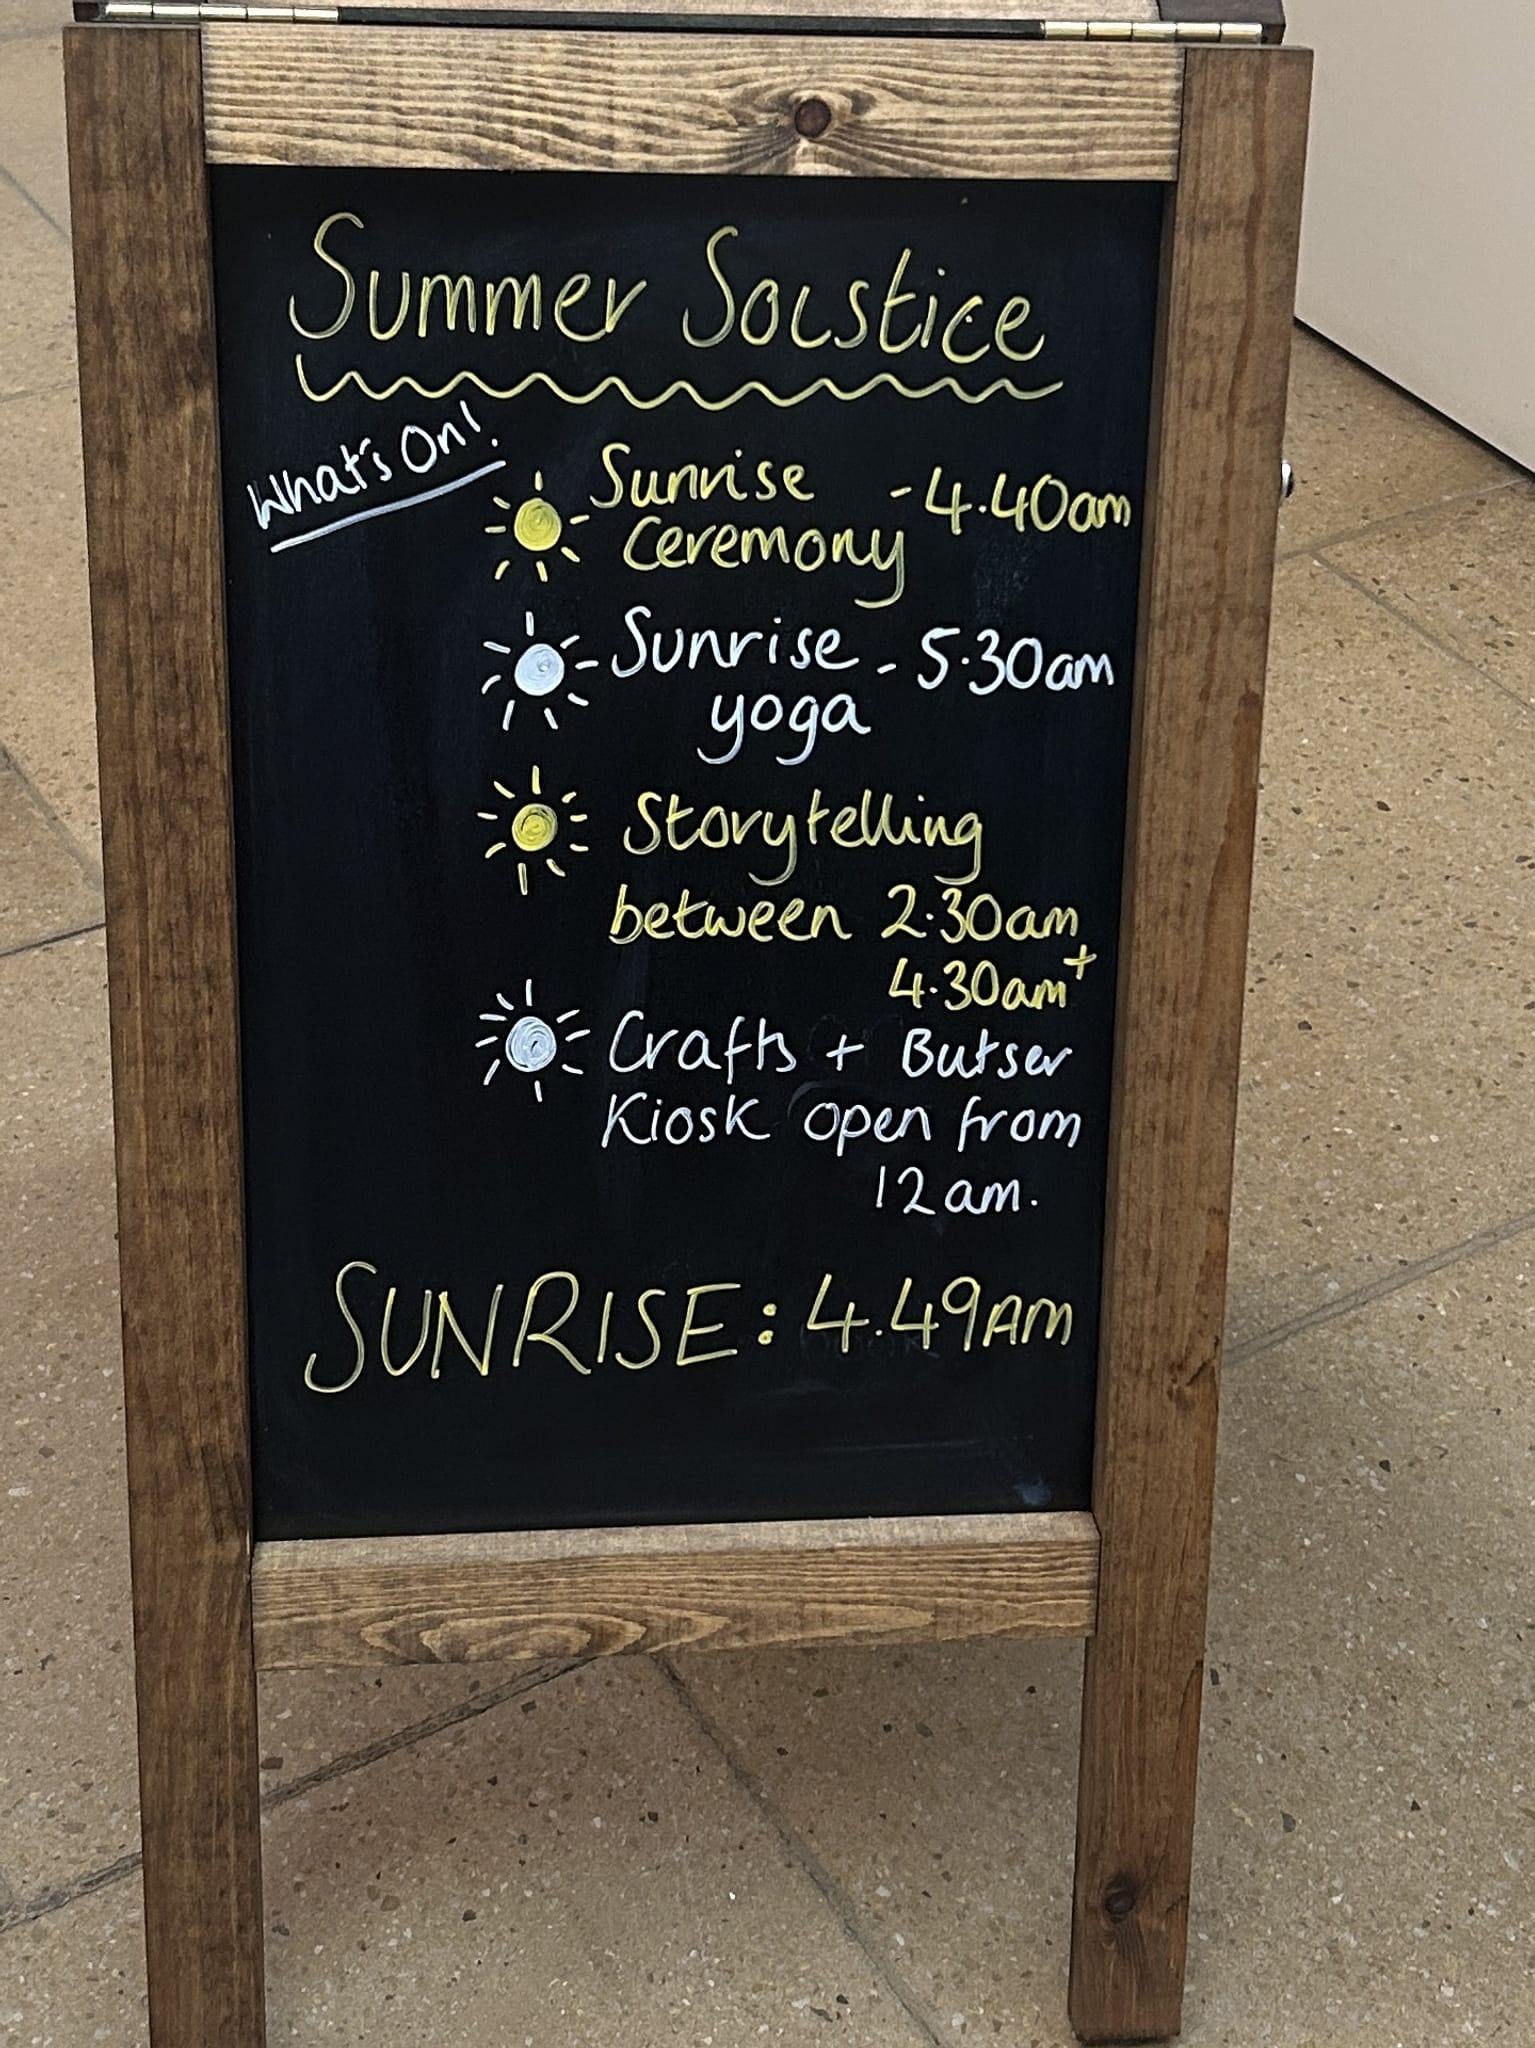 Summer Solstice
What's On!
Sunrise
Ceremony - 4.40am
Sunrise - 5.30am
yoga
Storytelling
between 2.30am
4.30am+
Crafts + Butser
Kiosk open from
12am.
SUNRISE: 4.49AM